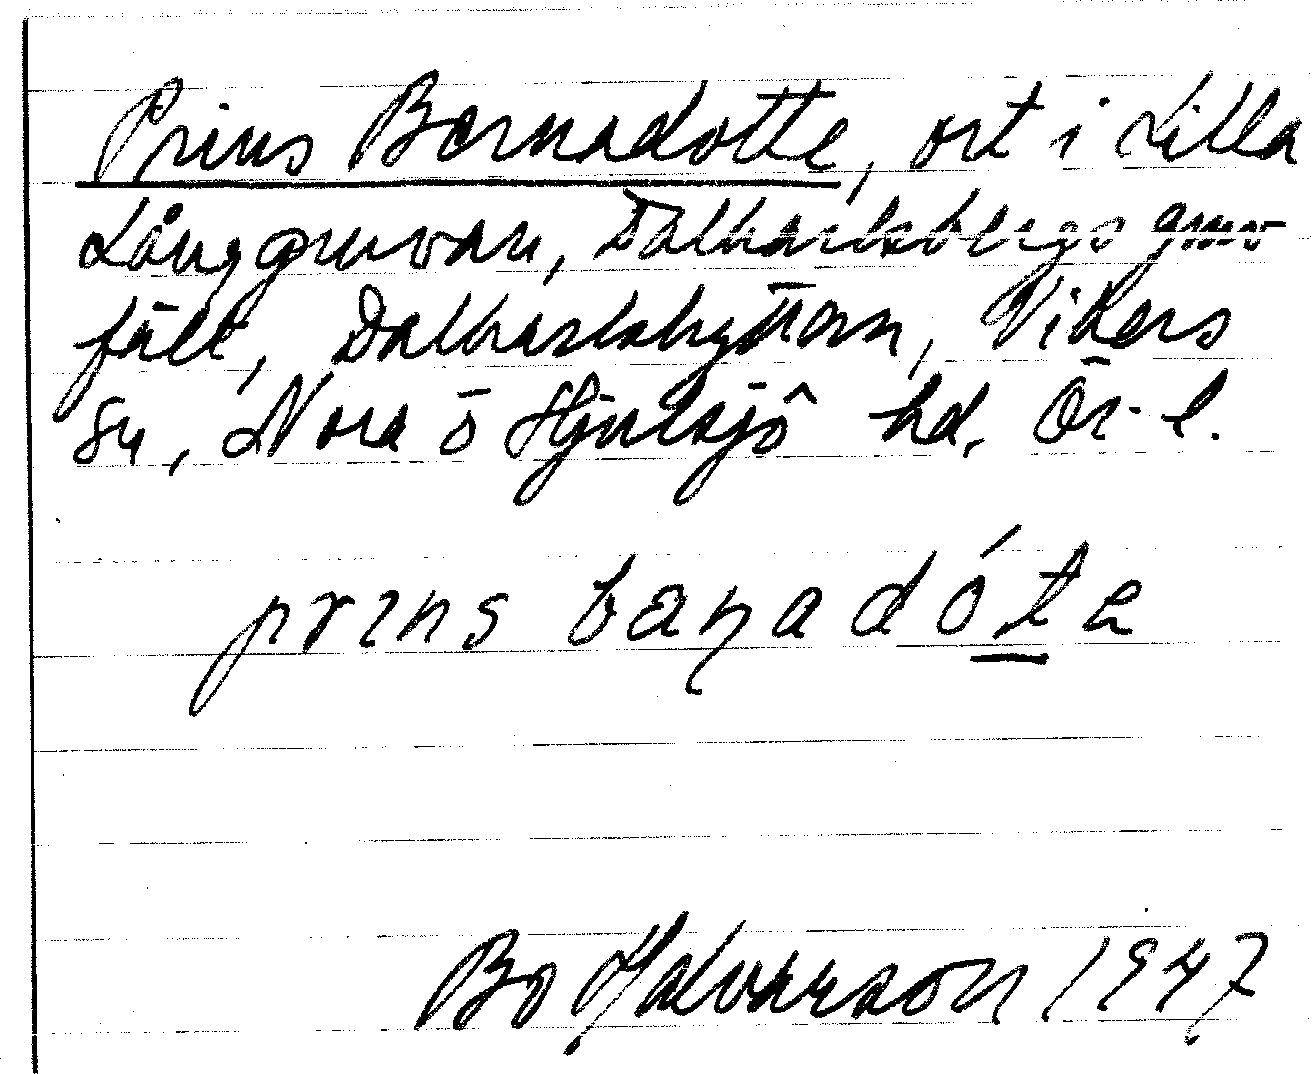 Prins Bernadotte, ort i Lilla
Långgruvan, Dalkarlsbergs gruv
fält, Dalkarlshyttan, Vikers
sn, Nora o Hjulsjö hd. Ör. l.
prins banadóta
Bo Halvarson 1947